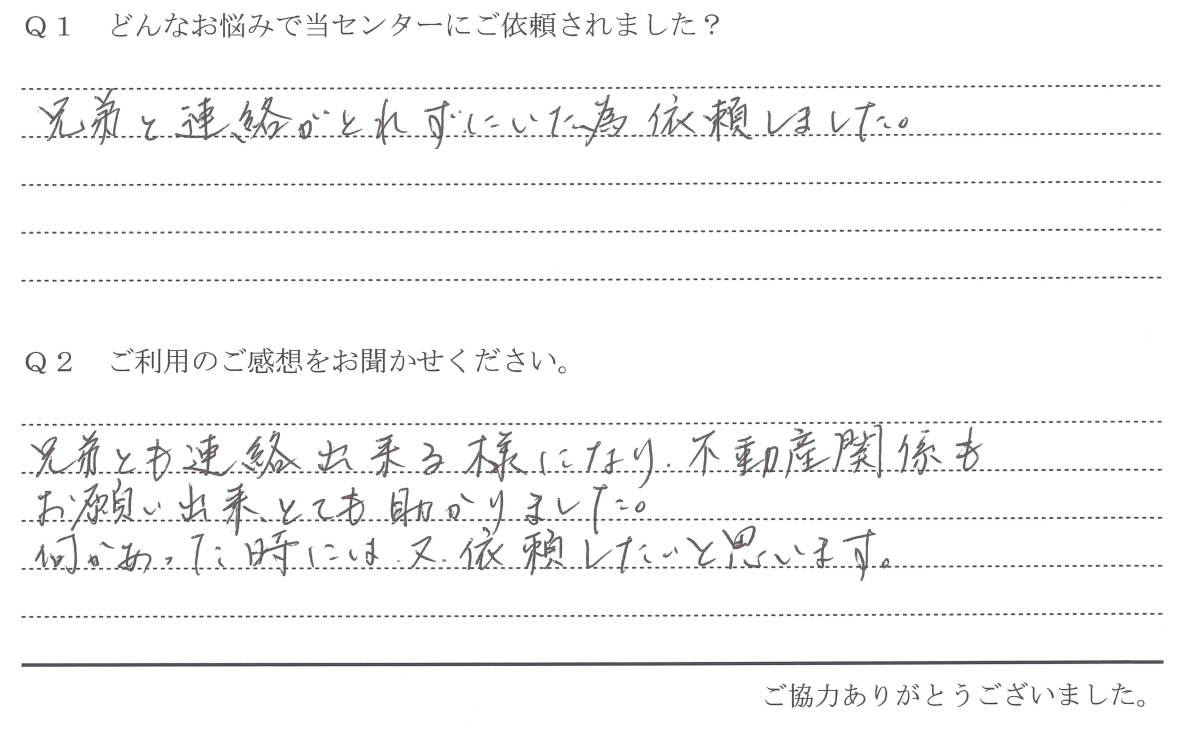 Ｑ１　どんなお悩みで当センターにご依頼されました？
兄弟と連絡がとれずにいた為依頼しました。
Ｑ２　ご利用のご感想をお聞かせください。
兄弟とも連絡出来る様になり、不動産関係も
お願い出来、とても助かりました。
何かあった時には又、依頼したいと思います。
ご協力ありがとうございました。